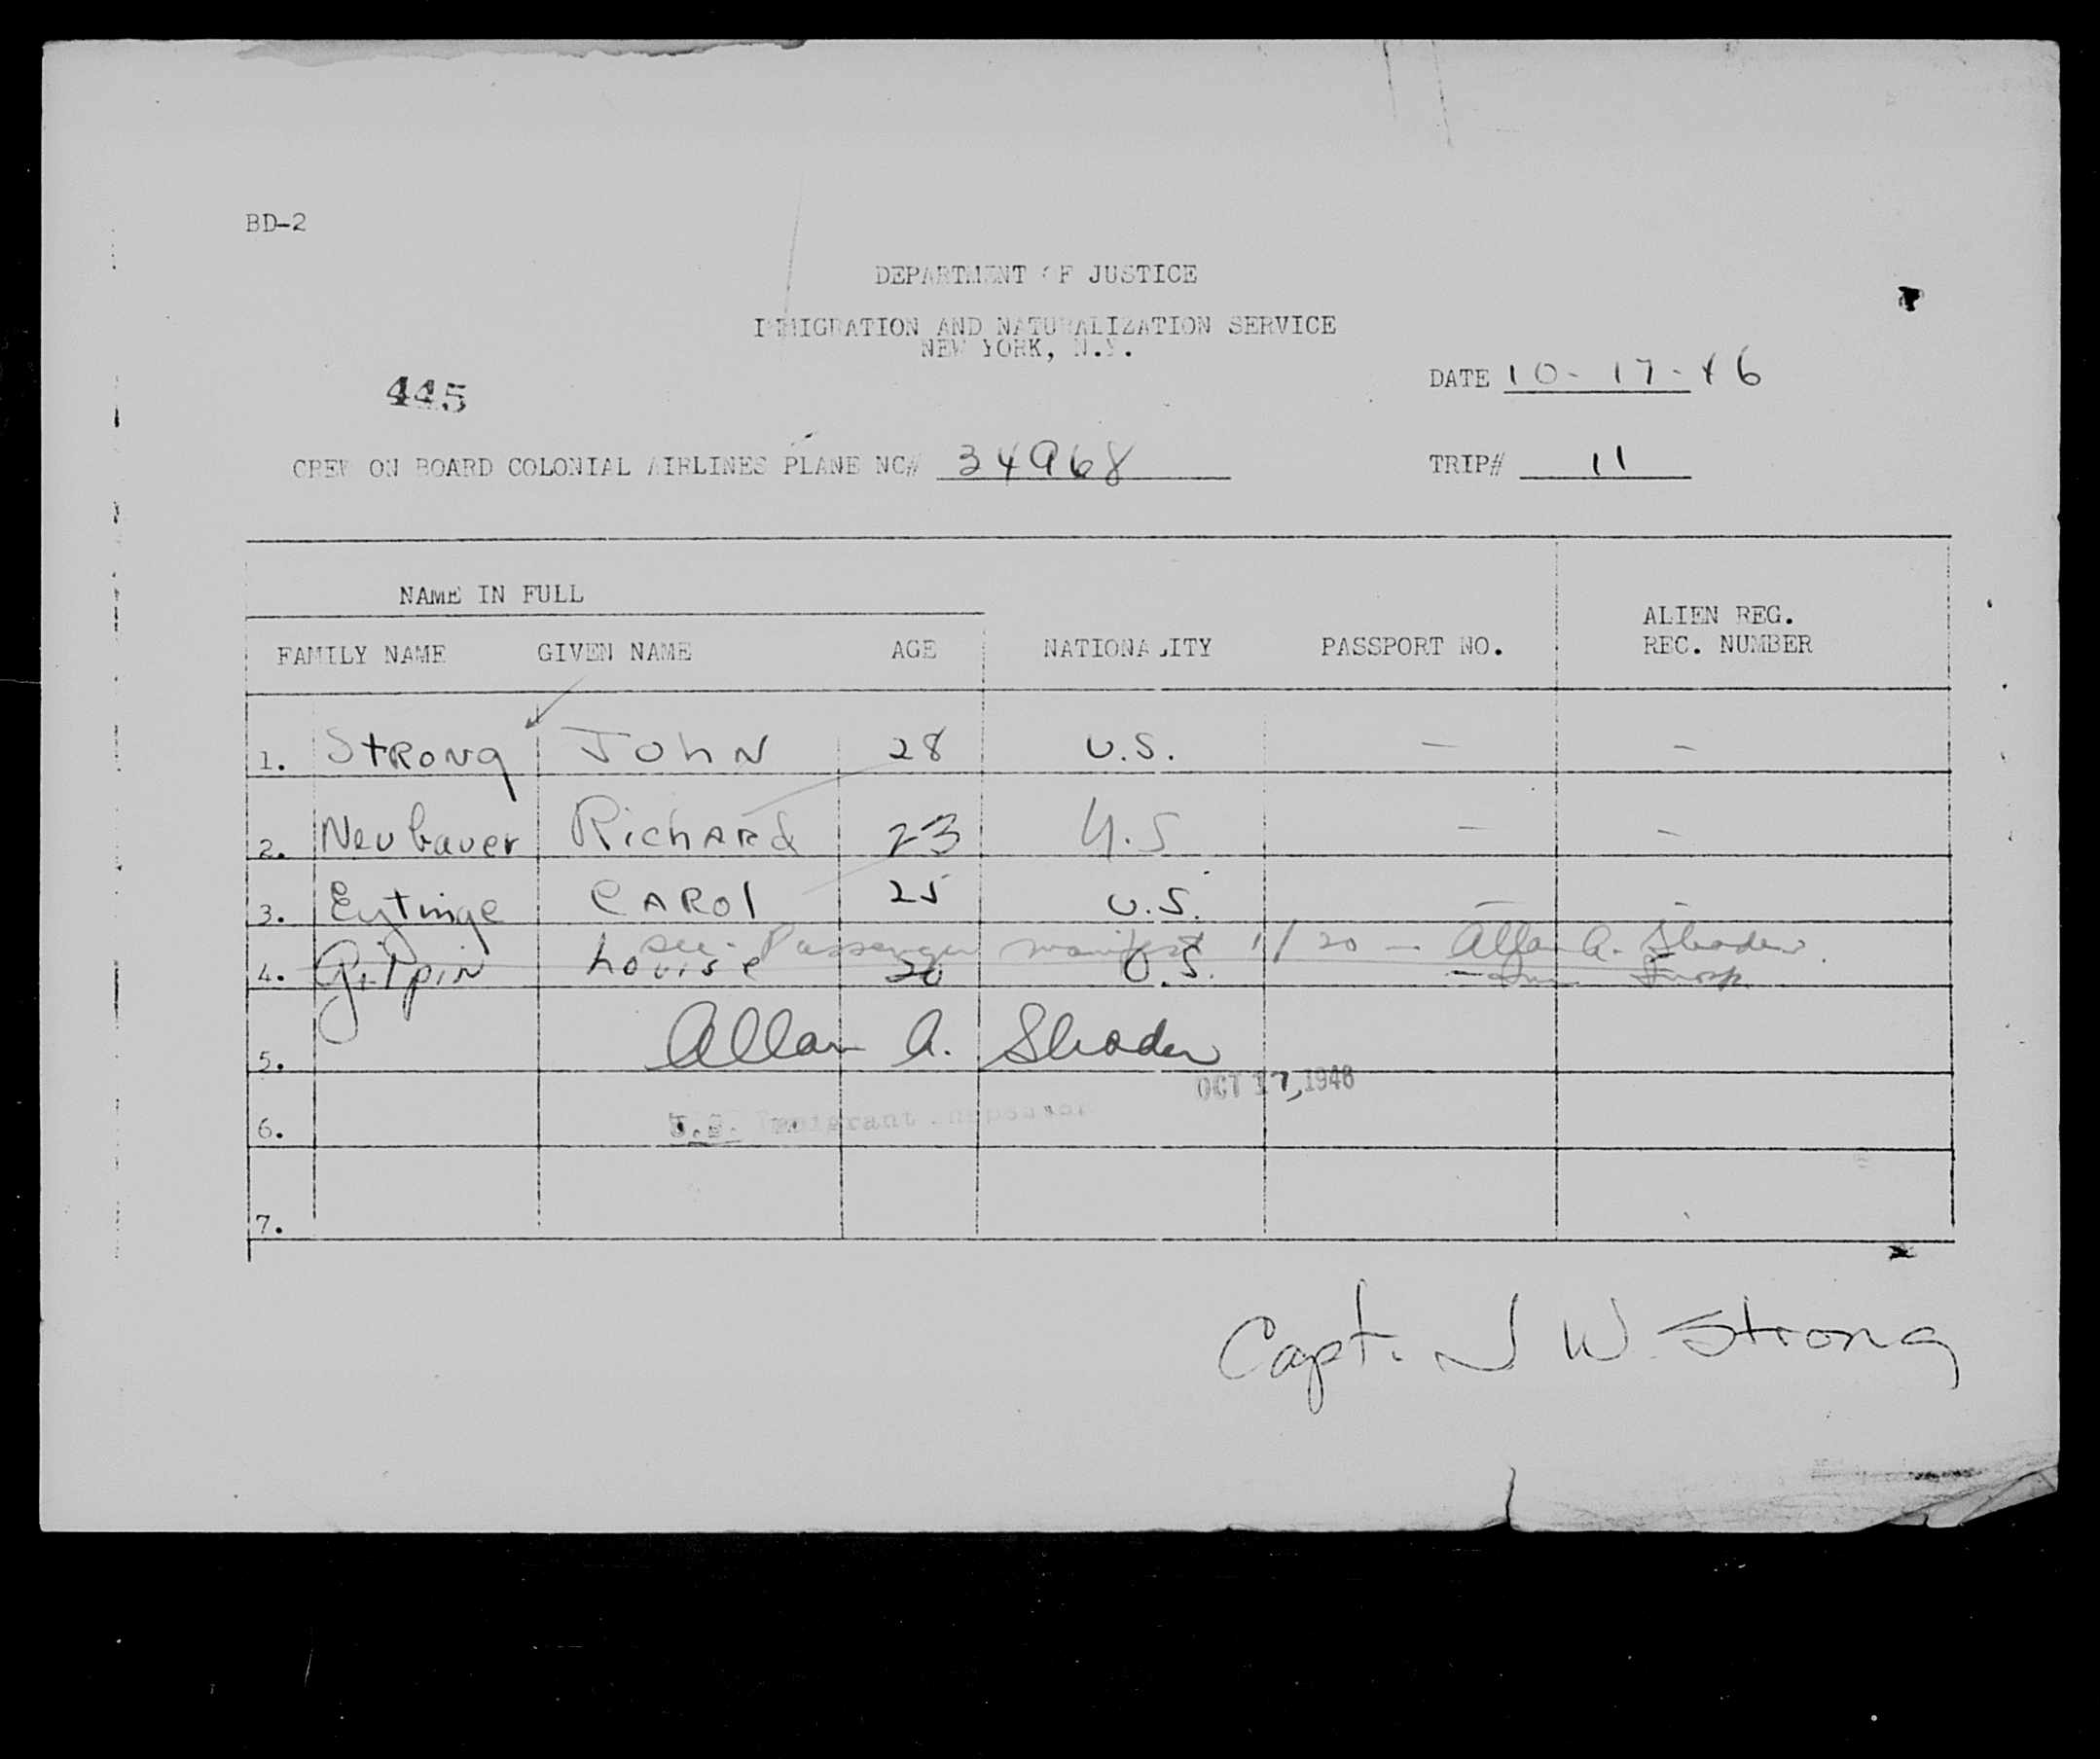 BD-2
DEPARTMENT OF JUSTICE
IMMIGRATION AND NATURALIZATION SERVICE
NEW YORK, N.Y.
445
DATE 10-17-46
CREW ON BOARD COLONIAL AIRLINES PLANE NC# 34968 TRIP# 11
NAME IN FULL
FAMILY NAME GIVEN NAME AGE NATIONALITY PASSPORT NO. ALIEN REG. REC. NUMBER
1. Strong John 28 U.S. — —
2. Neubauer Richard 23 U.S — —
3. Eytinge Carol 25 U.S. — —
see Passenger manifest 1/20 — Allan A. Shader
4. Gilpin Louise 20 U.S. — Imm Insp.
5. Allan A. Shader
OCT 17, 1946
6. U.S. Immigrant Inspector
7.
Capt. J W. Strong